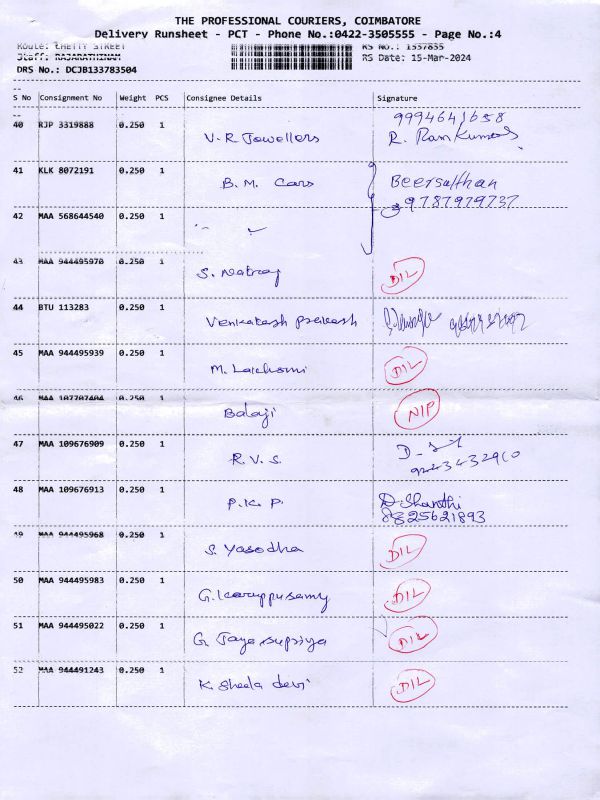 THE PROFESSIONAL COURIERS, COIMBATORE
Delivery Runsheet - PCT - Phone No.:0422-3505555 - Page No.:4
Route: CHETTY STREET RS No.: 1337855
Staff: RAJARATHINAM RS Date: 15-Mar-2024
DRS No.: DCJB133783504
S No Consignment No Weight PCS Consignee Details Signature
9994641658
40 RJP 3319888 0.250 1 V.R Jowellers R. Ramkumar
41 KLK 8072191 0.250 1 B.M. Cars Beersulthan
9787979737
42 MAA 568644540 0.250 1
43 MAA 944495970 0.250 1 S. Natraj DIL
44 BTU 113283 0.250 1 Venkatesh prakash
45 MAA 944495939 0.250 1 M. Lakshmi DIL
46 MAA 107707404 0.250 1 Balaji NIP
47 MAA 109676909 0.250 1 R.V.S.
48 MAA 109676913 0.250 1 P.K.P. D. Sharathi
8825621893
49 MAA 944495968 0.250 1 S. Yasodha DIL
50 MAA 944495983 0.250 1 G. Karuppusamy DIL
51 MAA 944495022 0.250 1 G. Jaya supriya DIL
52 MAA 944491243 0.250 1 K. Sheela devi DIL